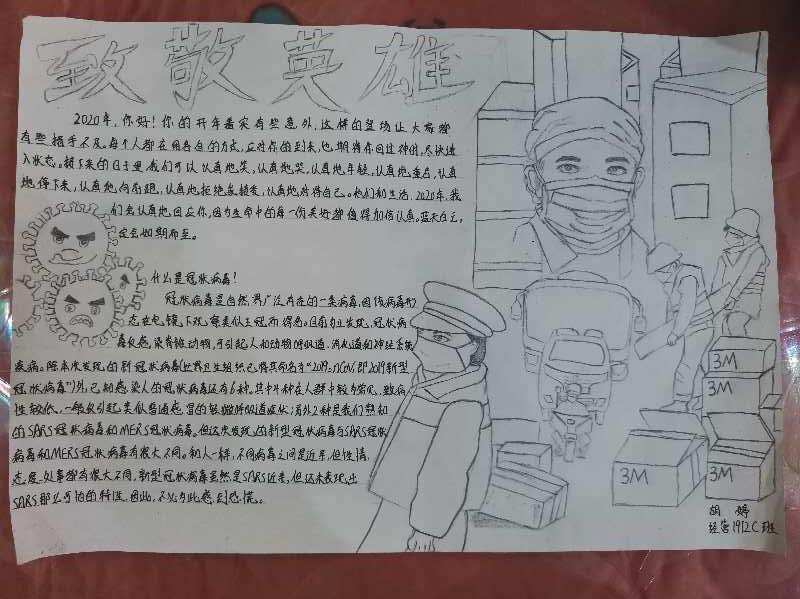 致敬英雄
2020年,你好!你的开年着实有些意外,这样的登场让大家都
有些措手不及。每个人都在用各自的方式,应对你的到来,也期待你回过神时,尽快进
入状态。接下来的日子里,我们可以认真地笑,认真地哭,认真地年轻,认真地老去,认真
地停下来,认真地向前跑,认真地拒绝
认真地对待自己。他们和生活,2020年,我
们会认真地回应你,因为生命中的每一份美好都值得加倍认真。蓝天白云,
定会如期而至。
什么是冠状病毒!
冠状病毒是自然界广泛存在的一类病毒,因该病毒形
态在电镜下观察类似王冠而得名。目前为止发现,冠状病
毒仅感染脊椎动物,可引起人和动物呼吸道、消化道和神经系统
疾病。除本次发现的新冠状病毒(世界卫生组织已将其命名为“2019-nCoV,即2019新型
冠状病毒”)外,已知感染人的冠状病毒还有6种。其中4种在人群中较为常见,致病
性较低,一般仅引起类似普通感冒的轻微呼吸道症状;另外2种是我们熟知
的SARS冠状病毒和MERS冠状病毒。但这次发现的新型冠状病毒与SARS冠状
病毒和MERS冠状病毒有很大不同。和人一样,不同病毒之间是近亲,但性情、
态度、处事都有很大不同,新型冠状病毒虽然是SARS近亲,但还未表现出
SARS那么可怕的特性,因此,不必为此感到恐慌。
3M
3M
3M
3M
胡婷
经营1912C班